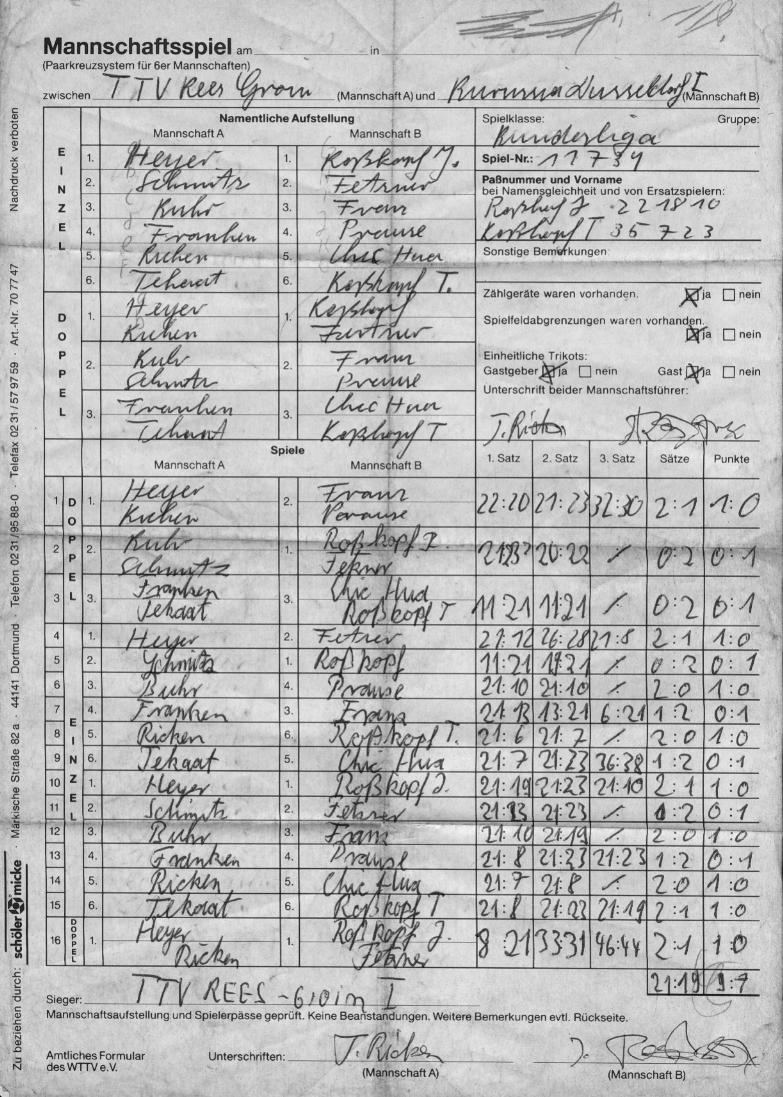 Mannschaftsspiel am in
(Paarkreuzsystem für 6er Mannschaften)
zwischen TTV Rees Groin (Mannschaft A) und Borussia Düsseldorf I (Mannschaft B)
Namentliche Aufstellung
Mannschaft A Mannschaft B
Spielklasse: Gruppe:
Bundesliga
Spiel-Nr.: 11734
Paßnummer und Vorname
bei Namensgleichheit und von Ersatzspielern:
Roßkopf J 221810
Roßkopf T 35723
Sonstige Bemerkungen:
EINZEL
1. Heyer 1. Roßkopf J.
2. Schmitz 2. Fetzner
3. Buhr 3. Franz
4. Franken 4. Prause
5. Ricken 5. Chic Hua
6. Tekaat 6. Roßkopf T.
DOPPEL
1. Heyer 1. Roßkopf
Ricken Fetzner
2. Buhr 2. Franz
Schmitz Prause
3. Franken 3. Chic Hua
Tekaat Roßkopf T
Zählgeräte waren vorhanden. ja nein
Spielfeldabgrenzungen waren vorhanden.
ja nein
Einheitliche Trikots:
Gastgeber ja nein Gast ja nein
Unterschrift beider Mannschaftsführer:
J. Ricken
Spiele
Mannschaft A Mannschaft B 1. Satz 2. Satz 3. Satz Sätze Punkte
DOPPEL
1 1. Heyer 2. Franz 22:20 21:23 32:30 2:1 1:0
Ricken Prause
2 2. Buhr 1. Roßkopf J. 20:22 ⁄. 0:2 0:1
Schmitz Fetzner
3 3. Franken 3. Chic Hua 11:21 11:21 ⁄. 0:2 0:1
Tekaat Roßkopf T
EINZEL
4 1. Heyer 2. Fetzner 21:12 26:28 21:8 2:1 1:0
5 2. Schmitz 1. Roßkopf 11:21 19:21 ⁄. 0:2 0:1
6 3. Buhr 4. Prause 21:10 21:10 ⁄. 2:0 1:0
7 4. Franken 3. Franz 21:13 13:21 6:21 1:2 0:1
8 5. Ricken 6. Roßkopf T. 21:6 21:7 ⁄. 2:0 1:0
9 6. Tekaat 5. Chic Hua 21:7 21:23 36:38 1:2 0:1
10 1. Heyer 1. Roßkopf J. 21:19 21:23 21:10 2:1 1:0
11 2. Schmitz 2. Fetzner 21:23 21:23 ⁄. 0:2 0:1
12 3. Buhr 3. Franz 21:10 21:19 ⁄. 2:0 1:0
13 4. Franken 4. Prause 21:8 21:23 21:23 1:2 0:1
14 5. Ricken 5. Chic Hua 21:7 21:8 ⁄. 2:0 1:0
15 6. Tekaat 6. Roßkopf T 21:8 21:23 21:19 2:1 1:0
DOPPEL
16 1. Heyer 1. Roßkopf J. 8:21 33:31 46:44 2:1 1:0
Ricken Fetzner
21:19 9:7
Sieger: TTV REES-Groin I
Mannschaftsaufstellung und Spielerpässe geprüft. Keine Beanstandungen. Weitere Bemerkungen evtl. Rückseite.
Amtliches Formular
des WTTV e.V.
Unterschriften: J. Ricken J.
(Mannschaft A) (Mannschaft B)
Zu beziehen durch: schöler micke Märkische Straße 82 a · 44141 Dortmund · Telefon 02 31/95 88-0 · Telefax 02 31/57 97 59 · Art.-Nr. 70 77 47 Nachdruck verboten